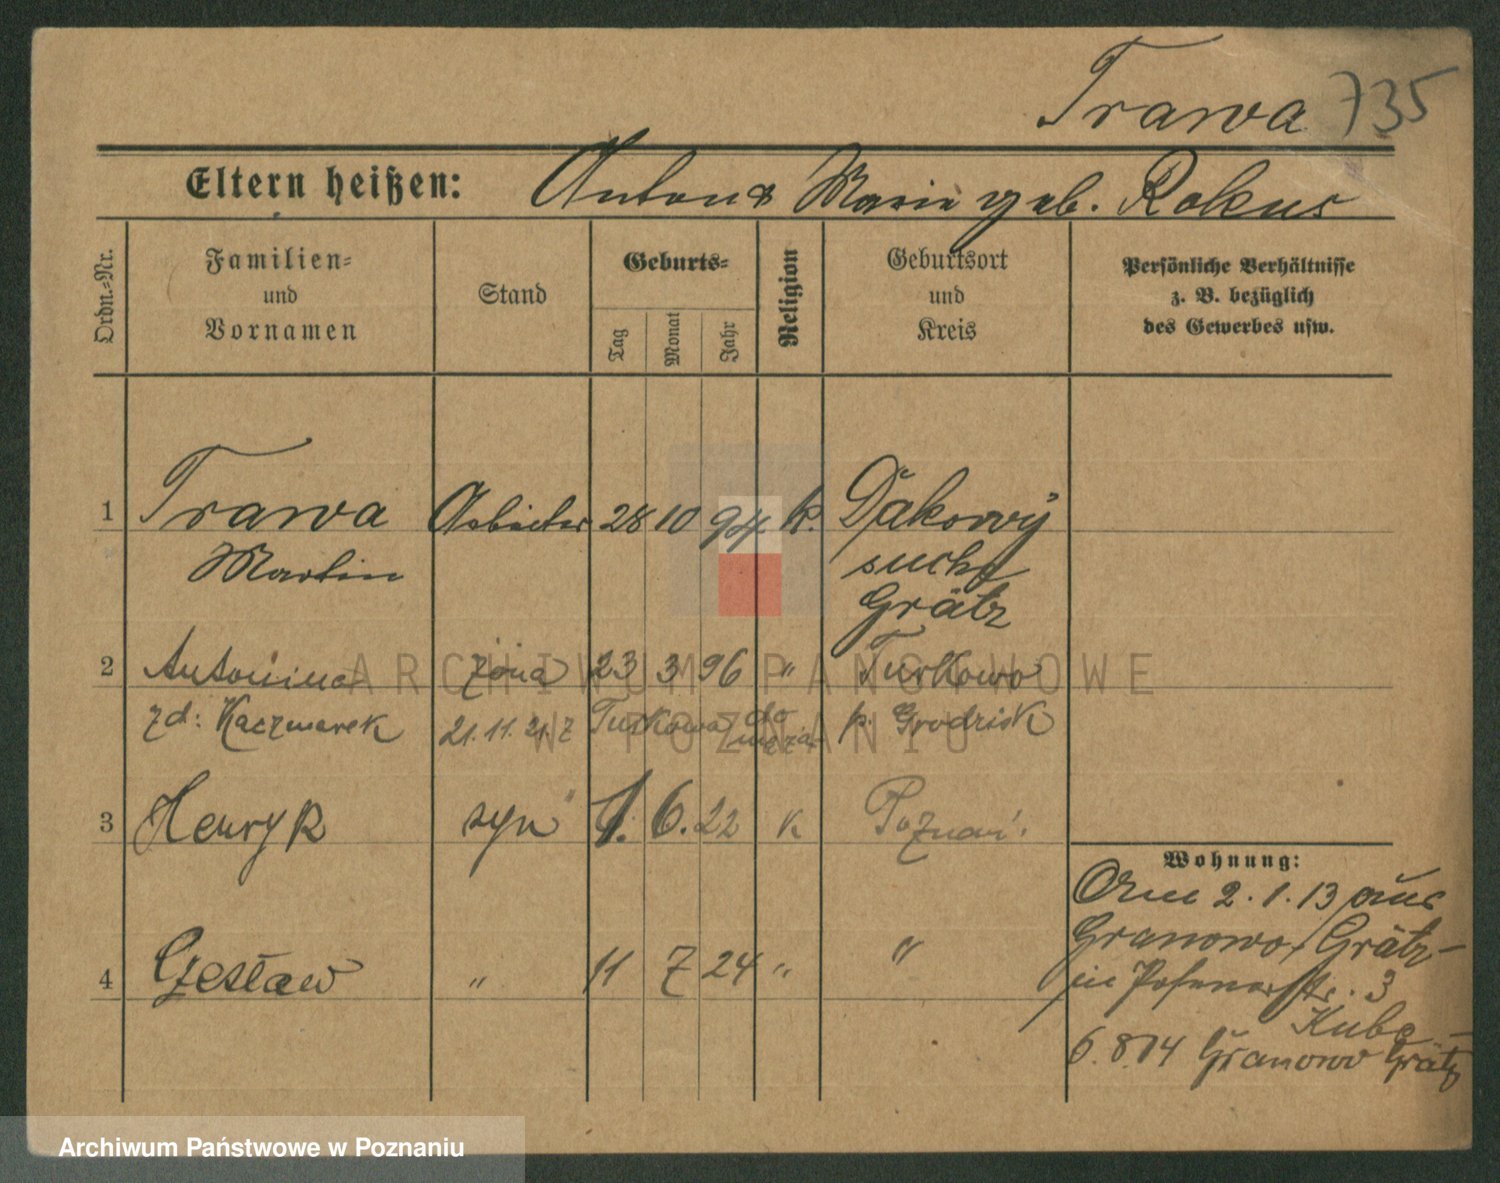 Trawa 735
Eltern heißen: Anton & Marie geb. Rokus
Ordn.-Nr.
Familien-
und
Vornamen
Stand
Geburts-
Tag
Monat
Jahr
Religion
Geburtsort
und
Kreis
Persönliche Verhältnisse
z. B. bezüglich
des Gewerbes usw.
1 Trawa Arbeiter 28 10 94 k. Dakowy
Martin suche
Grätz
2 Antonina żona 23 3 96 " Turkowo
zd: Kaczmarek 21.11.21. z Turkowa do męża p. Grodzisk
3 Henryk syn 1. 6. 22 k Poznań.
Wohnung:
Am 2.1.13 aus
Granowo, Grätz
4 Czesław " 11 7 24 " "
in Posenerstr. 3
Kube
6.8.14 Granowo Grätz
ARCHIWUM PAŃSTWOWE
W POZNANIU
Archiwum Państwowe w Poznaniu